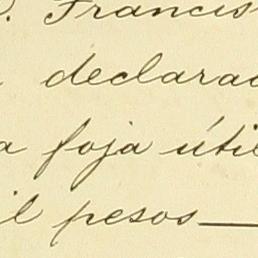 D. Francis
declarad
a foja útil
il pesos